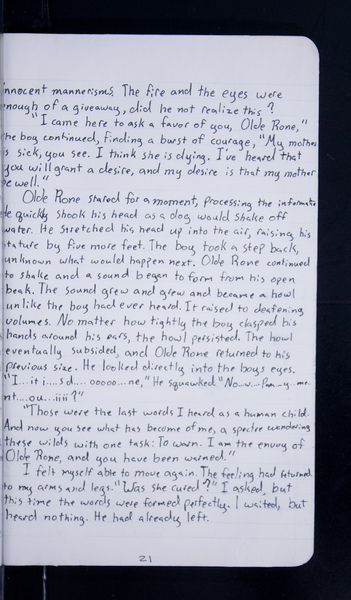 innocent mannerisms. The fire and the eyes were
enough of a giveaway, did he not realize this?
"I came here to ask a favor of you, Olde Rone,"
the boy continued, finding a burst of courage, "My mother
is sick, you see. I think she is dying. I've heard that
you will grant a desire, and my desire is that my mother
be well."
Olde Rone stared for a moment, processing the informatio
He quickly shook his head as a dog would shake off
water. He stretched his head up into the air, raising his
stature by five more feet. The boy took a step back,
unknown what would happen next. Olde Rone continued
to shake and a sound began to form from his open
beak. The sound grew and grew and became a howl
unlike the boy had ever heard. It raised to deafening
volumes. No matter how tightly the boy clasped his
hands around his ears, the howl persisted. The howl
eventually subsided, and Olde Rone returned to his
previous size. He looked directly into the boys eyes.
"I...it i....s d.... ooooo...ne," He squawked "No...w... Pam...y...me.
nt....ou...iiii?"
"Those were the last words I heard as a human child.
And now you see what has become of me, a spectre wandering
these wilds with one task: To warn. I am the envoy of
Olde Rone, and you have been warned."
I felt myself able to move again. The feeling had returned
to my arms and legs. "Was she cured?" I asked, but
this time the words were formed perfectly. I waited, but
heard nothing. He had already left.
21